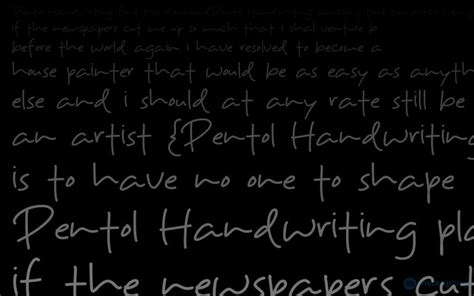 if the newspapers cut me up so much that I shal venture b
before the world again I have resolved to become a
house painter that would be as easy as anyth
else and i should at any rate still be
an artist {Pentol Handwriting
is to have no one to shape
Pentol Handwriting pla
if the newspapers cut